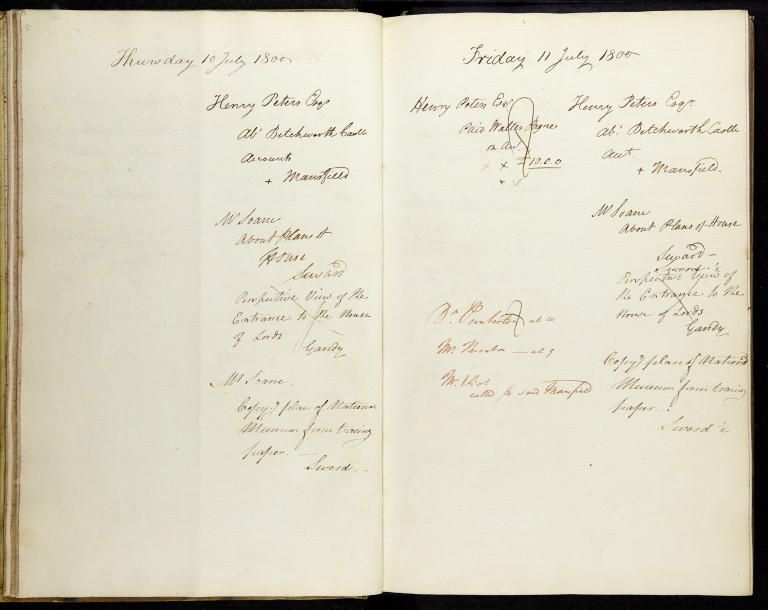 Thursday 10 July 1800
Henry Peters Esqr
Abt Betchworth Castle
Accounts
+ Mansfield
Mr Soane
About Plans of
House
Seward
Perspective View of the
Entrance to the House
of Lords
Gandy
Mr Soane.
Copyg plan of National
Museum from tracing
paper. —
Sword —
Friday 11 July 1800
Henry Peters Esqr
Paid Walter Payne
on Acct
× × £10.0.0
Dr Pemberton at 10
Mr — at 9
Mr
called to send Mansfield
Henry Peters Esqr
Abt Betchworth Castle
Acct.
+ Mansfield.
Mr Soane
About Plans of House
Seward —
Seward
Perspective View of
the Entrance to the
House of Lords
Gandy
Copyg plan of National
Museum from tracing
paper —
Sword